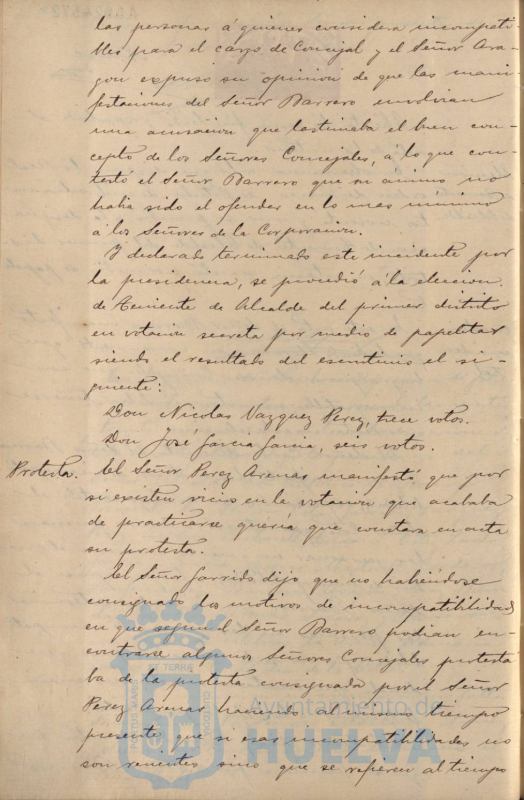 las personas á quienes considera incompati-
bles para el cargo de Concejal y el Señor Ara-
gon expuso su opinion de que las mani-
festaciones del Señor Barrero envolvian
una acusacion que lastimaba el buen con-
cepto de los Señores Concejales, á lo que con-
testó el Señor Barrero que su animo no
habia sido el ofender en lo mas minimo
á los Señores de la Corporacion.
Y declarado terminado este incidente por
la presidencia, se procedió á la eleccion
de Teniente de Alcalde del primer distrito
en votacion secreta por medio de papeletas
siendo el resultado del escrutinio el si-
guiente:
Don Nicolas Vazquez Perez, trece votos.
Don José Garcia Garcia, seis votos.
Protesta.
El Señor Perez Arenas manifestó que por
si existen vicios en la votacion que acababa
de practicarse queria que constara en acta
su protesta.
El Señor Garrido dijo que no habiendose
consignado los motivos de incompatibilidad
en que segun el Señor Barrero podian en-
contrarse algunos Señores Concejales protesta
ba de la protesta consignada por el Señor
Perez Arenas haciendo al mismo tiempo
presente que si esas incompatibilidades no
son recientes sino que se refieren al tiempo
Ayuntamiento de
HUELVA